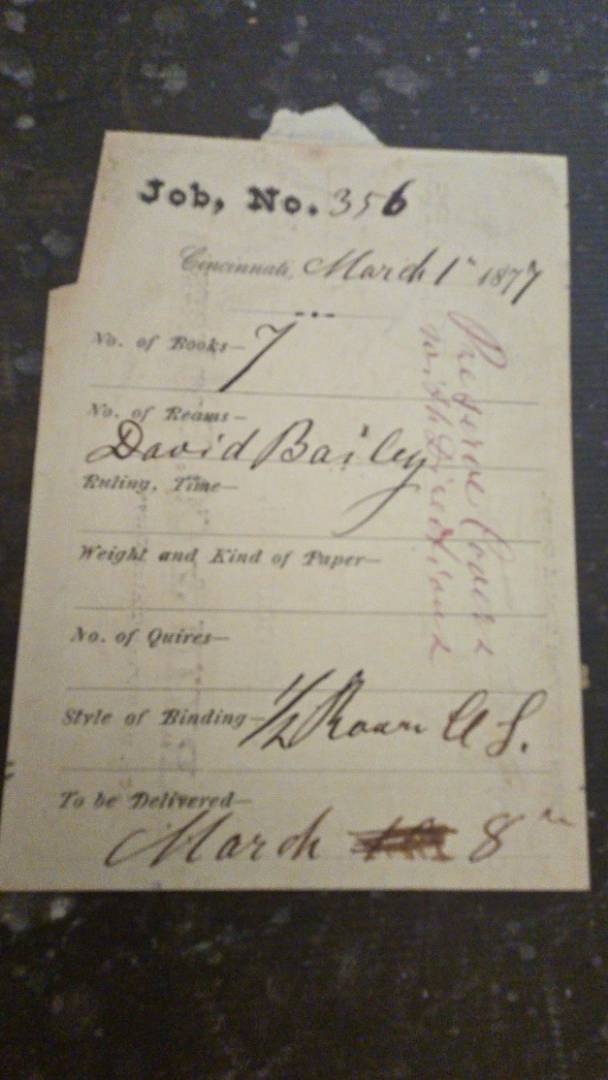 Job, No. 356
Cincinnati, March 1st 1877
No. of Books— 7
No. of Reams—
David Bailey
Ruling, Time—
Weight and Kind of Paper—
No. of Quires—
Style of Binding— 1/2 Roan
To be Delivered—
March 8th
Preserve Covers
with Directions